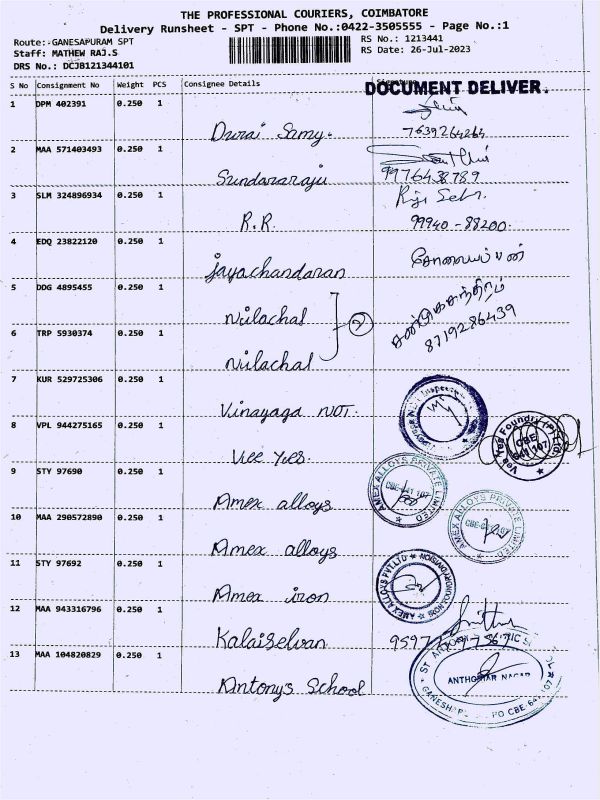 THE PROFESSIONAL COURIERS, COIMBATORE
Delivery Runsheet - SPT - Phone No.:0422-3505555 - Page No.:1
Route: GANESAPURAM SPT
Staff: MATHEW RAJ.S
DRS No.: DCJB121344101
RS No.: 1213441
RS Date: 26-Jul-2023
S No Consignment No Weight PCS Consignee Details
DOCUMENT DELIVER.
1 DPM 402391 0.250 1
Durai Samy. 7639264264
2 MAA 571403493 0.250 1
Sundararaju 9976438789
3 SLM 324896934 0.250 1
R.R. 99940-88200
4 EDQ 23822120 0.250 1
jayachandaran
5 DDG 4895455 0.250 1
Nilachal
2
8719286439
6 TRP 5930374 0.250 1
Nilachal
7 KUR 529725306 0.250 1
Vinayaga NDT.
8 VPL 944275165 0.250 1
Vee Yes.
Vee Yes Foundry (P) Ltd.
CBE
641 107
9 STY 97690 0.250 1
Amex alloys
AMEX ALLOYS PRIVATE LIMITED
CBE-641 107
10 MAA 290572890 0.250 1
Amex alloys
AMEX ALLOYS PRIVATE LIMITED
11 STY 97692 0.250 1
Amex iron
AMEX ALLOYS PVT.LTD
IRON FOUNDRY DIVISION
12 MAA 943316796 0.250 1
Kalaiselvan
13 MAA 104820829 0.250 1
Antonys School
ANTHONIAR NAGAR
PO CBE-641 107